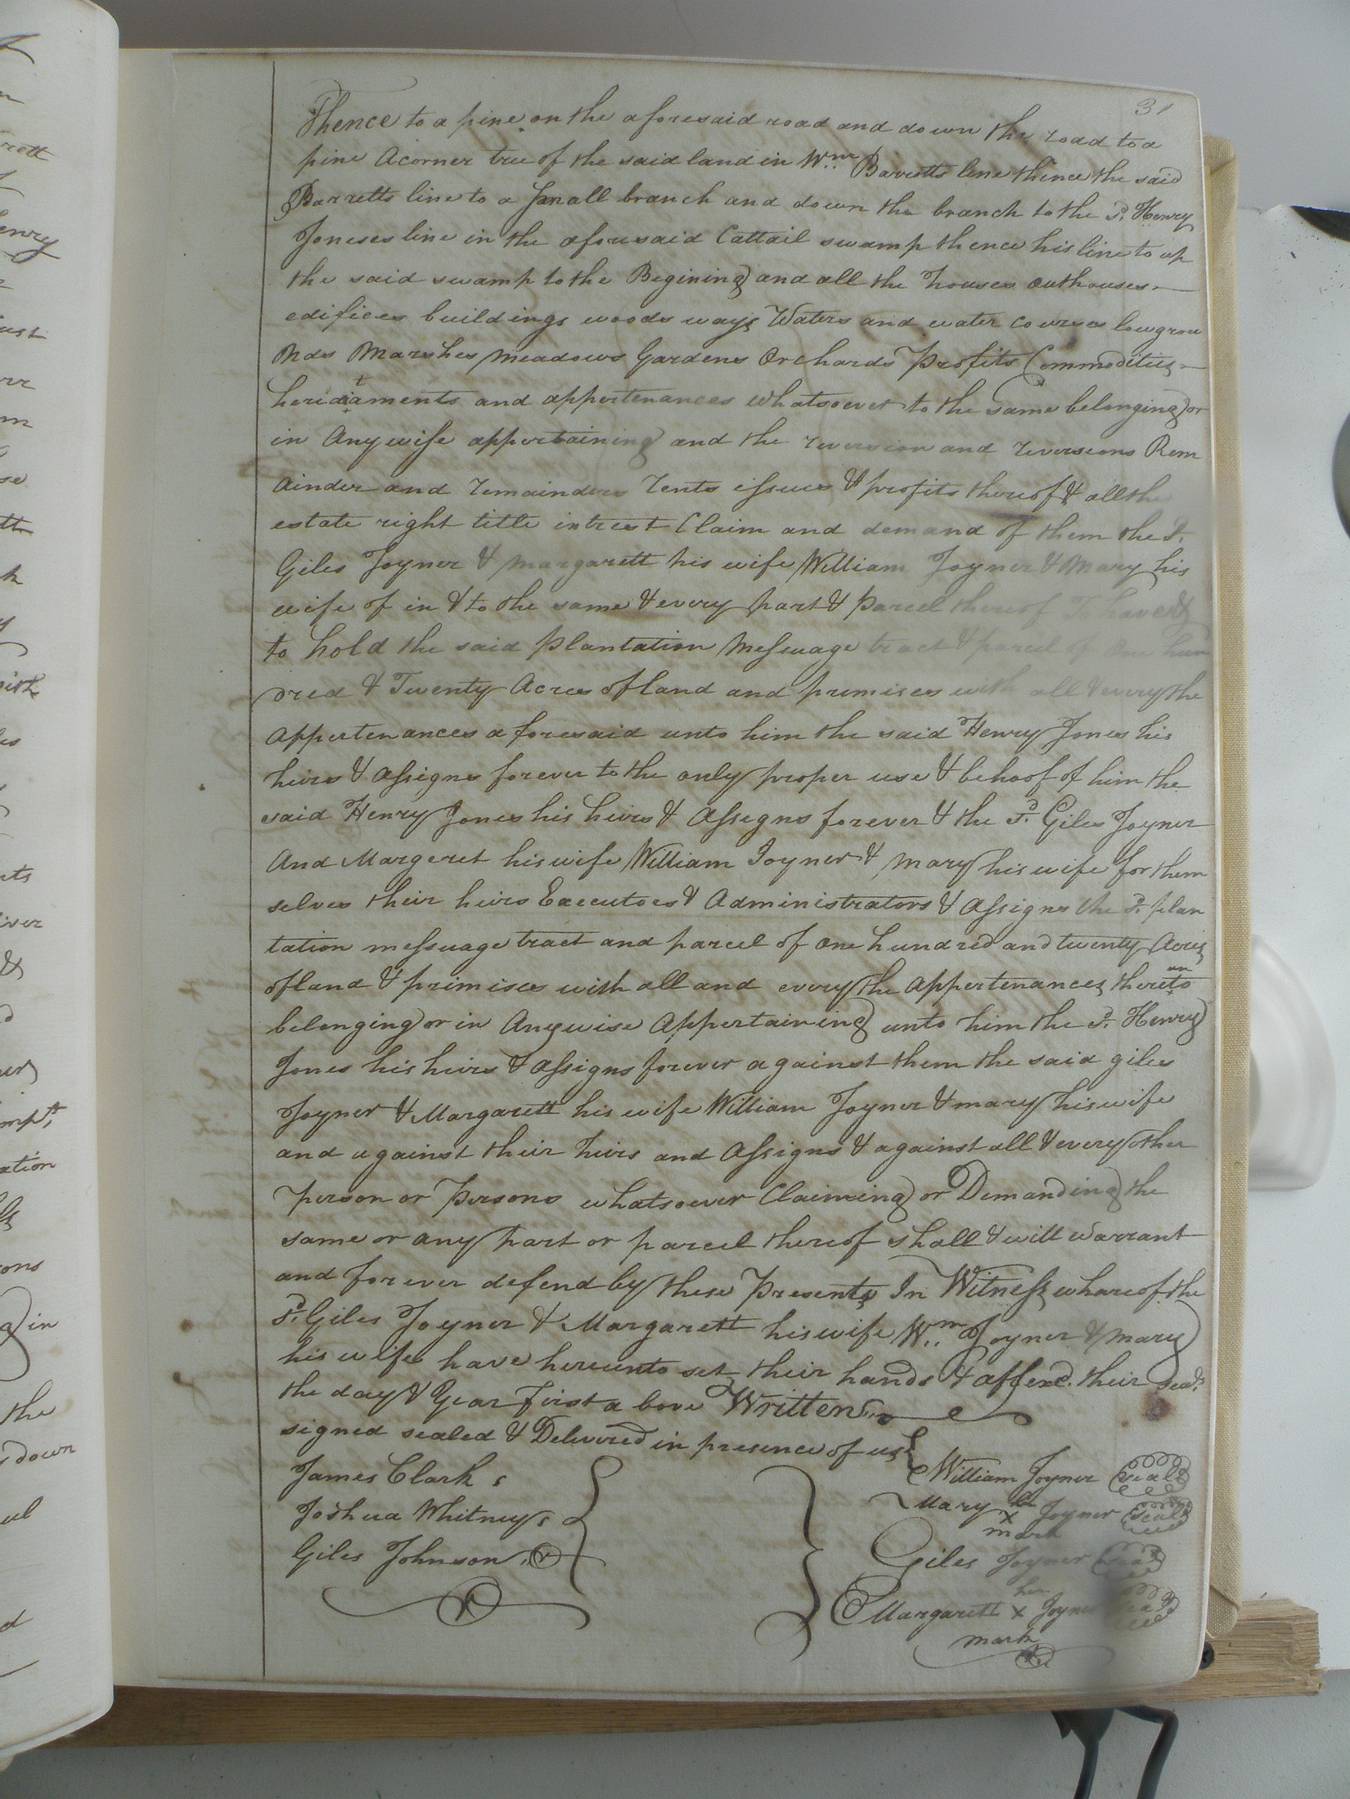 31
Thence to a pine on the aforesaid road and down the road to a
pine Acorner tree of the said land in Wm Barretts line thence the said
Barretts line to a Small branch and down the branch to the sd. Henry
Joneses line in the aforesaid Cattail swamp thence his line to up
the said swamp to the Begining and all the houses outhouses
edifices buildings woods ways Waters and water courses lowgrou
nds Marshes meadows Gardens Orchards Profits Commodities
heriditaments and appertenances whatsoever to the same belonging or
in Any wise appertaining and the reversion and reversions Rem
ainder and remainders rents issues & profits thereof & all the
estate right title intrest Claim and demand of them the sd.
Giles Joyner & Margarett his wife William Joyner & Mary his
wife of in & to the same & every part & parcel thereof To have &
to hold the said plantation Messuage tract & parcel of One hun
dred & Twenty Acres of land and premises with all & every the
appertenances aforesaid unto him the said Henry Jones his
heirs & Assigns forever to the only proper use & behoof of him the
said Henry Jones his heirs & Assigns forever & the sd. Giles Joyner
And Margeret his wife William Joyner & mary his wife for them
selves their heirs Executors & Administrators & Assigns the sd. plan
tation messuage tract and parcel of one hundred and twenty Acres
of land & primises with all and every the appertenances thereunto
belonging or in Anywise Appertaining unto him the sd. Henry
Jones his heirs & Assigns forever against them the said giles
Joyner & Margarett his wife William Joyner & mary his wife
and against their heirs and Assigns & against all & every other
person or persons whatsoever Claiming or Demanding the
same or any part or parcel thereof shall & will warrant
and forever defend by these Presents In Witness whareof the
sd. Giles Joyner & Margarett his wife Wm Joyner & mary
his wife have hereunto set their hands & affexd. their seals
the day & Year first above Written
signed sealed & Delivered in presence of us
James Clark William Joyner seal
Mary her Joyner seal
Joshua Whitney x
mark
Giles Johnson Giles Joyner seal
her
Margarett x Joyner seal
mark